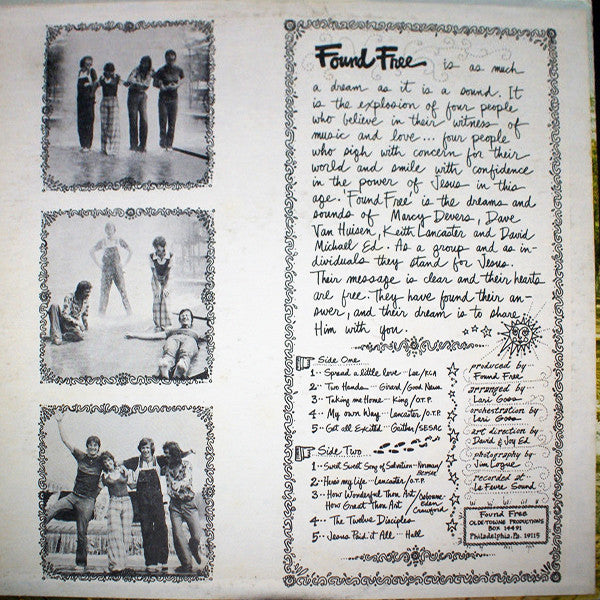 Found Free is as much
a dream as it is a sound. It
is the explosion of four people
who believe in their witness of
music and love... four people
who sigh with concern for their
world and smile with confidence
in the power of Jesus in this
age. 'Found Free' is the dreams and
sounds of Marcy Devers, Dave
Van Huisen, Keith Lancaster and David
Michael Ed. As a group and as in-
dividuals they stand for Jesus.
Their message is clear and their hearts
are free. They have found their an-
swer, and their dream is to share
Him with you.
Side One
1·· Spread a little love ··· Lee/KCA
2·· Two Hands ··· Girard/Good News
3·· Taking me Home ·· King/O.T.P.
4·· My own Way ··· Lancaster/O.T.P.
5·· Get all Excited ··· Gaither/SESAC
Side Two
1·· Sweet Sweet Song of Salvation ·· Norman/
2·· Here's my life ·· Lancaster/O.T.P.
3·· How Wonderful Thou Art/
How Great Thou Art
4·· The Twelve Disciples
5·· Jesus Paid it All ··· Hall
produced by
Found Free
arranged by
Lari Goss
orchestration by
Lari Goss
art direction by
David & Joy Ed
photography by
Jim Logue
recorded at
Le Fevre Sound
Found Free
OLDE-TOWNE PRODUCTIONS
BOX 14491
Philadelphia, Pa. 19115